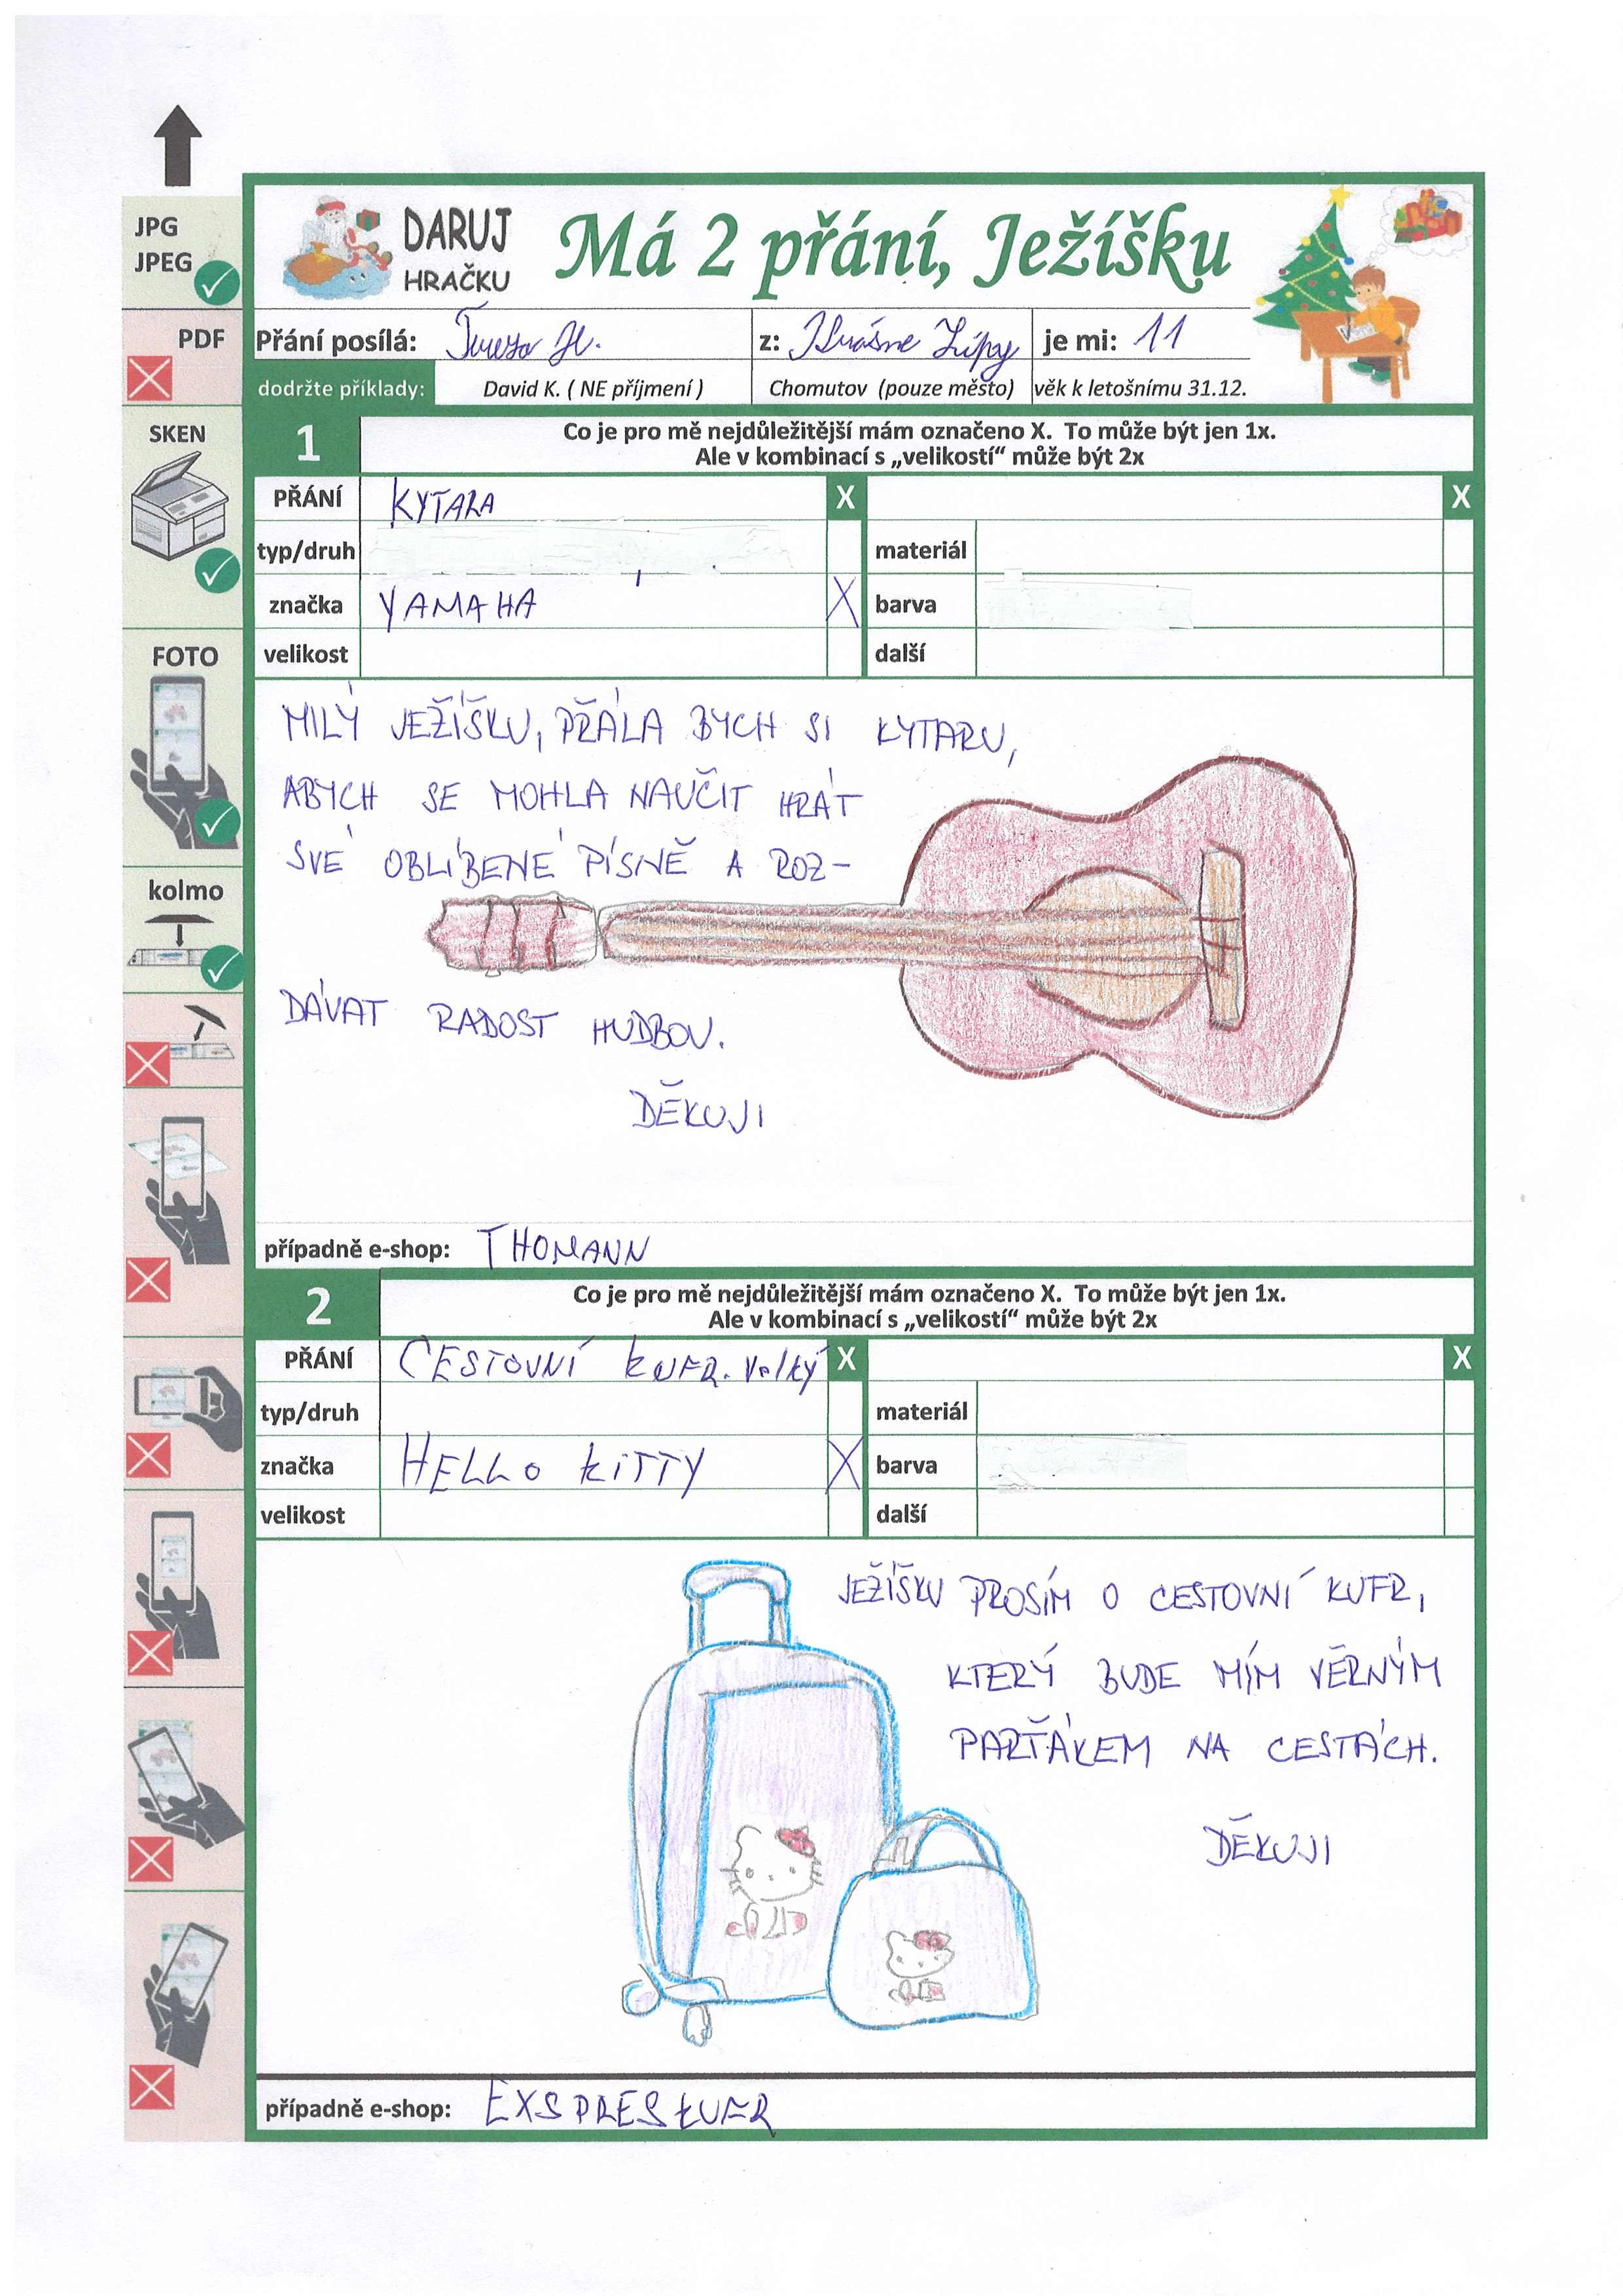 JPG
JPEG
PDF
SKEN
FOTO
kolmo
DARUJ
HRAČKU
Má 2 přání, Ježíšku
Přání posílá: Tereza H. z: Krásne Lípy je mi: 11
dodržte příklady: David K. ( NE příjmení ) Chomutov (pouze město) věk k letošnímu 31.12.
1 Co je pro mě nejdůležitější mám označeno X. To může být jen 1x.
Ale v kombinací s „velikostí“ může být 2x
PŘÁNÍ KYTARA X X
typ/druh materiál
značka YAMAHA X barva
velikost další
MILÝ JEŽÍŠKU, PŘÁLA BYCH SI KYTARU,
ABYCH SE MOHLA NAUČIT HRÁT
SVÉ OBLÍBENÉ PÍSNĚ A ROZ-
DÁVAT RADOST HUDBOU.
DĚKUJI
případně e-shop: THOMANN
2 Co je pro mě nejdůležitější mám označeno X. To může být jen 1x.
Ale v kombinací s „velikostí“ může být 2x
PŘÁNÍ CESTOVNÍ KUFR. Velký X X
typ/druh materiál
značka HELLO KITTY X barva
velikost další
JEŽÍŠKU PROSÍM O CESTOVNÍ KUFR,
KTERÝ BUDE MÍM VĚRNÝM
PARŤÁKEM NA CESTÁCH.
DĚKUJI
případně e-shop: EXSPRESKUFR